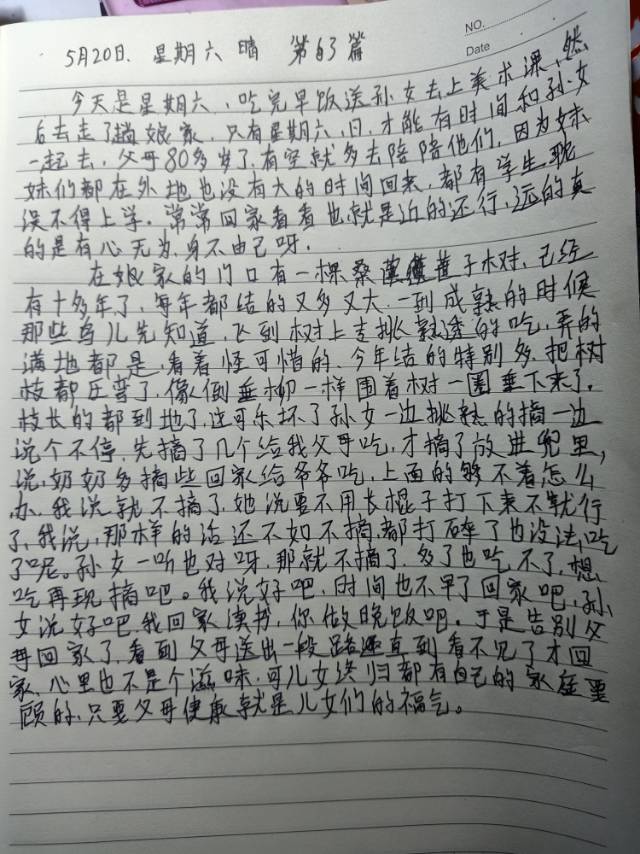 NO.
Date
5月20日. 星期六 晴 第63篇
今天是星期六,吃完早饭送孙女去上美术课,然
后去走了趟娘家,只有星期六,日,才能有时间和孙女
一起去,父母80多岁了,有空就多去陪陪他们,因为妹
妹们都在外地也没有太的时间回来,都有学生,耽
误不得上学.常常回家看看也就是近的还行,远的真
的是有心无为,身不由己呀.
在娘家的门口有一棵桑子树,已经
有十多年了,每年都结的又多又大.一到成熟的时候
那些鸟儿先知道,飞到树上去挑熟透的吃,弄的
满地都是,看着怪可惜的.今年结的特别多,把树
枝都压弯了,像倒垂柳一样围着树一圈垂下来了.
枝长的都到地了,这可乐坏了孙女一边挑熟的摘一边
说个不停,先摘了几个给我父母吃,才摘了放进兜里,
说,奶奶多摘些回家给爷爷吃,上面的够不着怎么
办,我说就不摘了,她说要不用长棍子打下来不就行
了,我说,那样的话还不如不摘,都打碎了也没法吃
了呢。孙女一听也对呀,那就不摘了,多了也吃不了,想
吃再现摘吧。我说好吧,时间也不早了回家吧,孙
女说好吧,我回家读书,你做晚饭吧.于是告别父
母回家了,看到父母送出一段路直到看不见了才回
家,心里也不是个滋味,可儿女终归都有自己的家庭要
顾的,只要父母健康就是儿女们的福气。